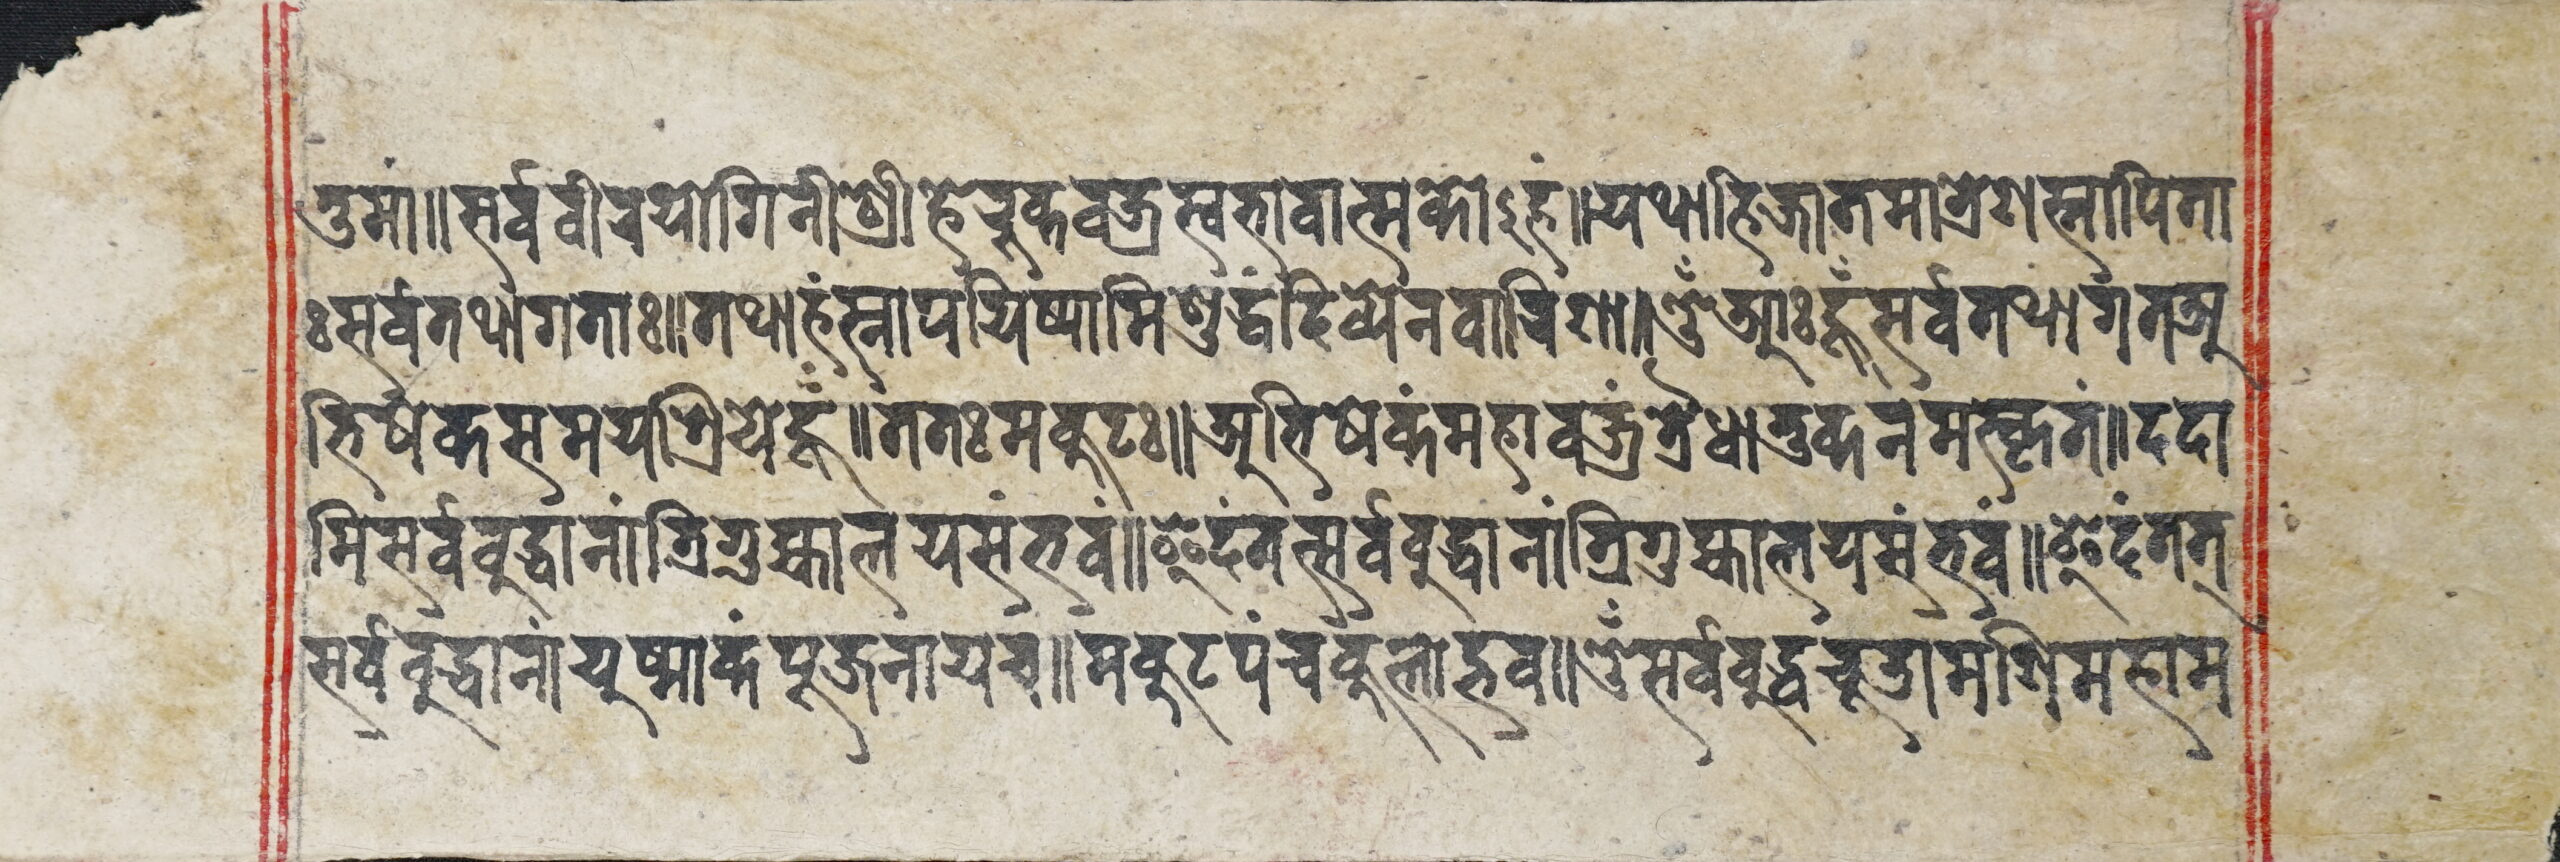 तुमां॥सर्ववीरयोगिनीश्रीहेरुकवज्रस्वभावात्मकोऽहं॥यथाहिजातमात्रेणस्नापिता
ःसर्वतथागताः॥तथाहंस्नापयिष्यामिशुद्धंदिव्येनवारिणा॥ॐआःहूँसर्वतथागतअ
भिषेकसमयश्रियेहूँ॥ततःमकुटः॥अभिषेकंमहावज्रंत्रैधातुकनमस्कृतं॥ददा
मिसर्वबुद्धानांत्रिगुह्यालयसंभवं॥इदंतत्सर्वबुद्धानांत्रिगुह्यालयसंभवं॥इदंतत्
सर्वबुद्धानांयुष्माकंपूजनायच॥मकुटपंचकुलोद्भव॥ॐसर्वबुद्धचूडामणिमहाम